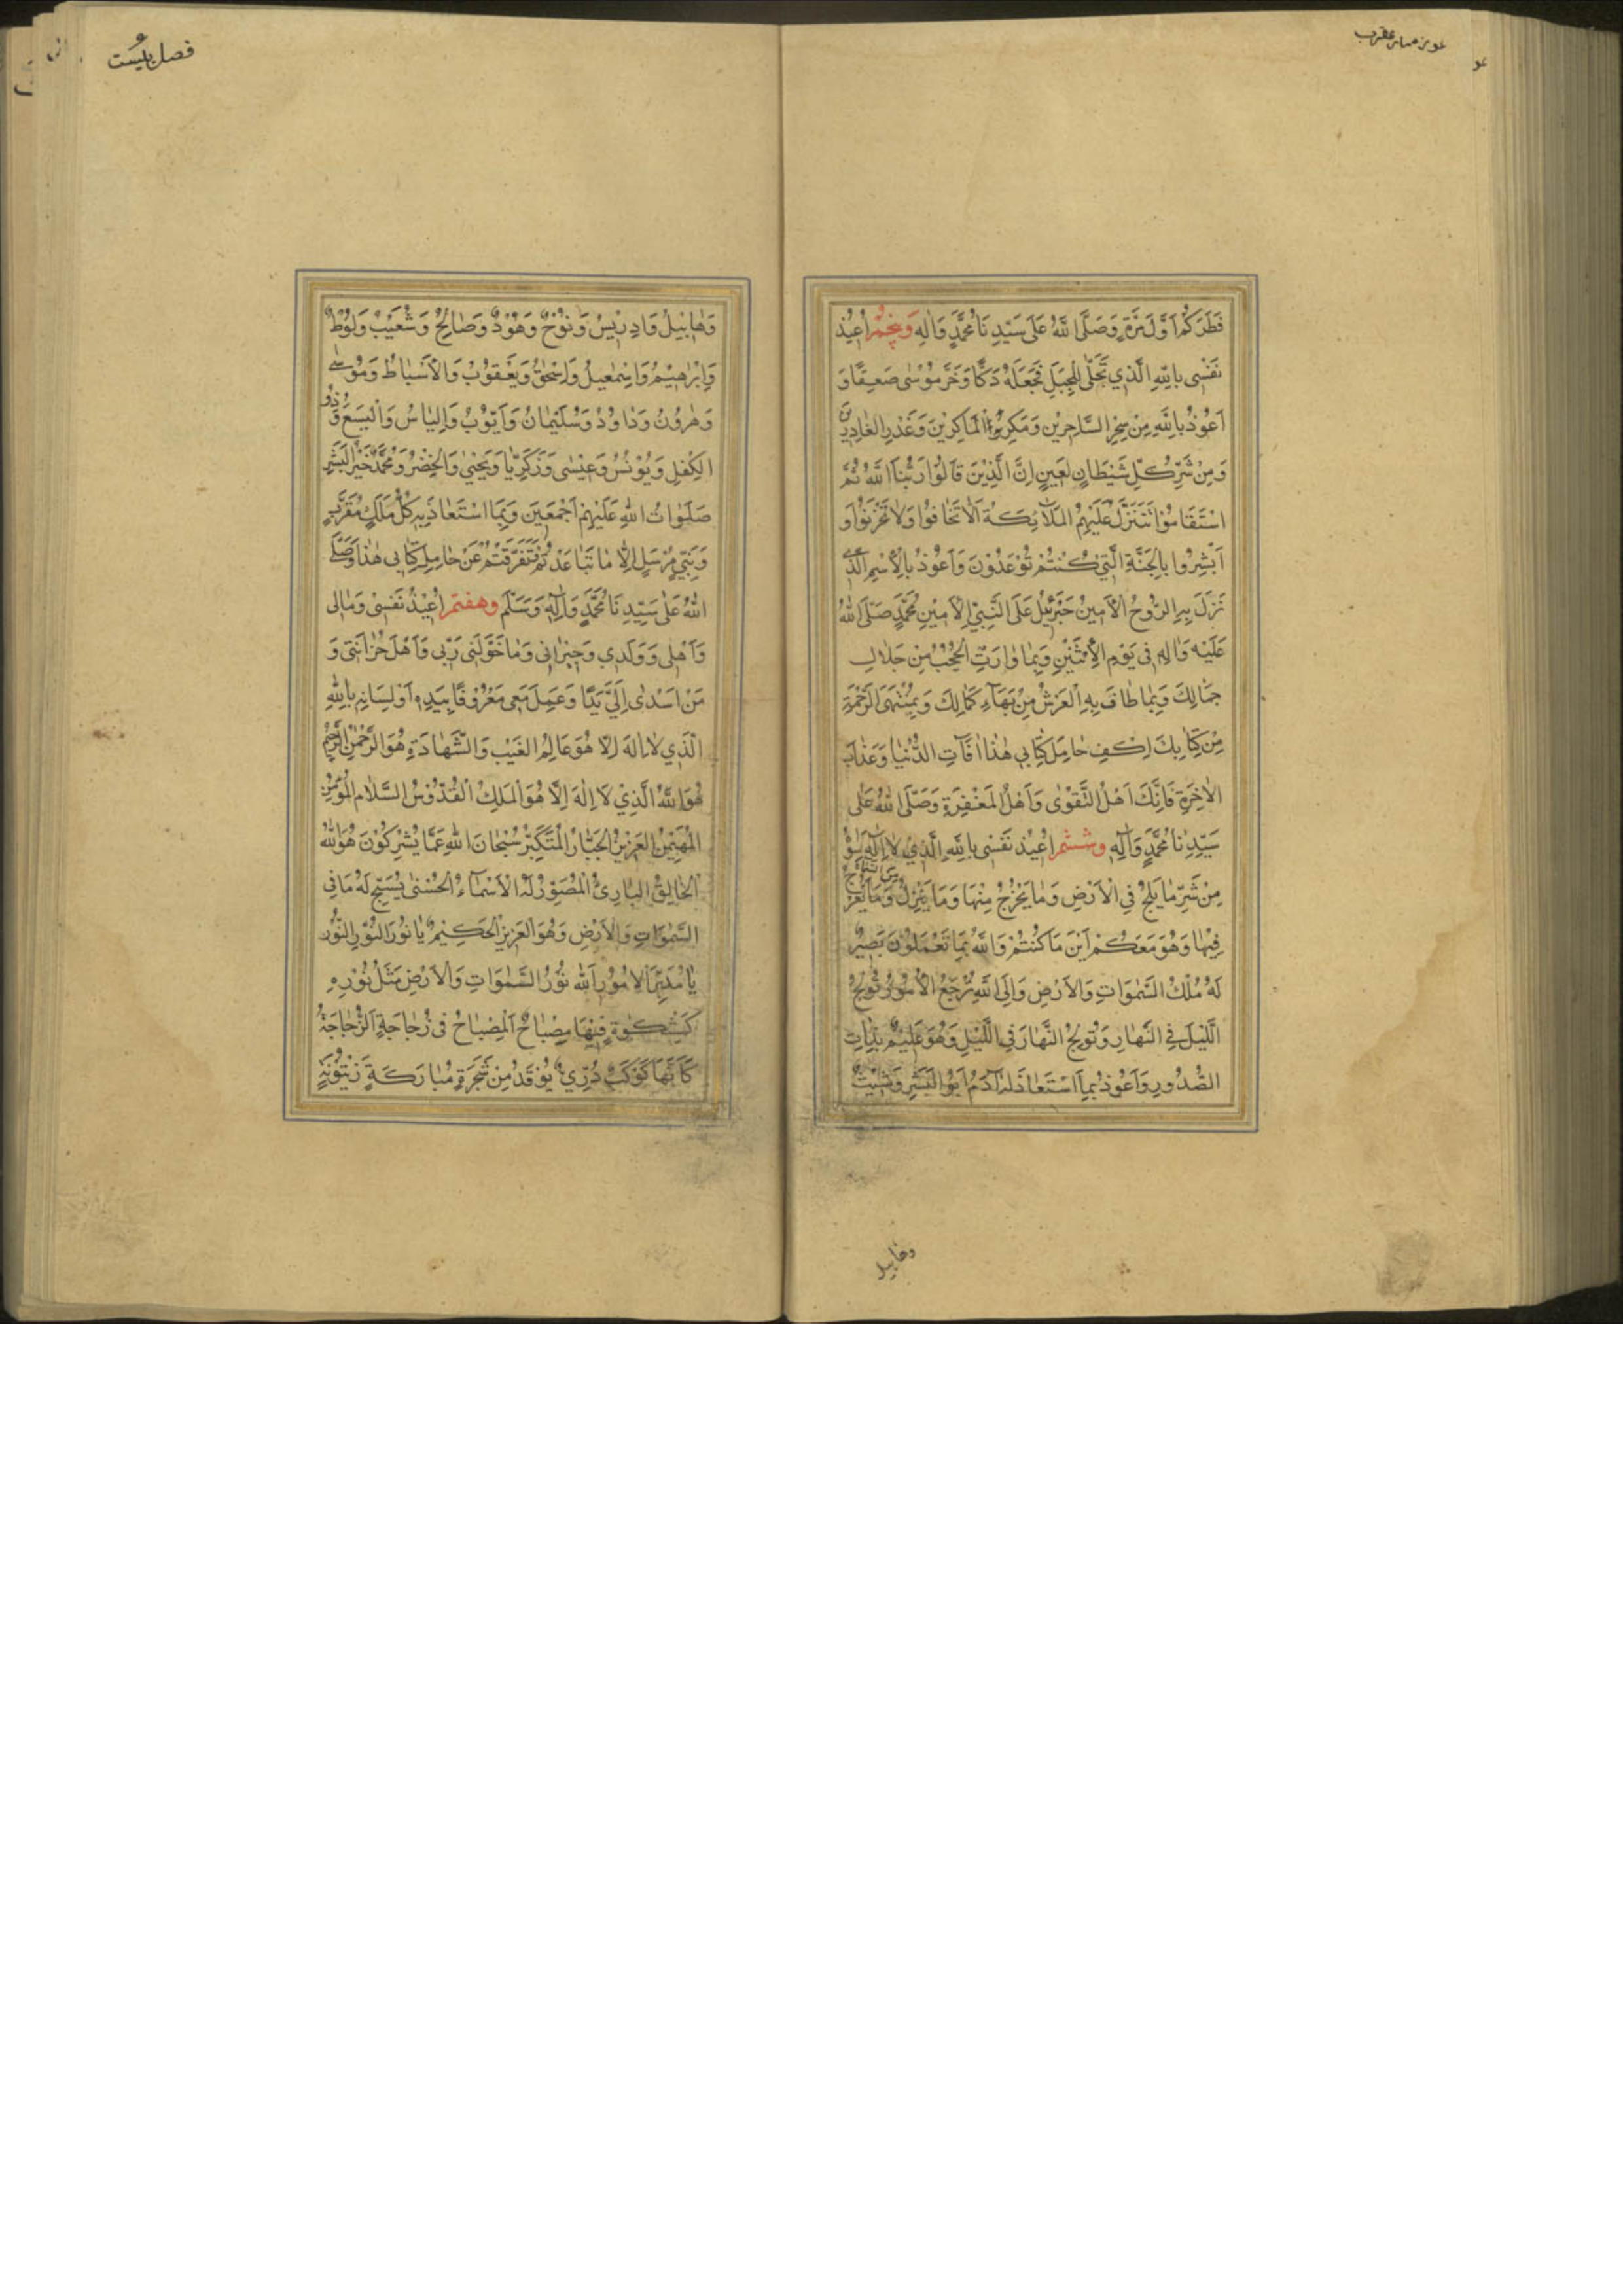 فَطَرَكُمْ اَوَّلَ مَرَّةٍ وَصَلَّى اللّٰهُ عَلٰى سَيِّدِنَا مُحَمَّدٍ وَاٰلِهِ وَپَنجُمْ اُعِيْذُ
نَفْسِى بِاللّٰهِ الَّذِي تَجَلّٰى لِلْجَبَلِ فَجَعَلَهُ دَكًّا وَخَرَّ مُوْسٰى صَعِقًا وَ
اَعُوْذُ بِاللّٰهِ مِنْ سِحْرِ السَّاحِرِيْنَ وَمَكْرِ الْمَاكِرِيْنَ وَغَدْرِ الغَادِرِيْنَ
وَمِنْ شَرِّ كُلِّ شَيْطَانٍ لَعِينٍ اِنَّ الَّذِيْنَ قَالُوْا رَبُّنَا اللّٰهُ ثُمَّ
اسْتَقَامُوْا تَتَنَزَّلُ عَلَيْهِمُ المَلَآئِكَةُ اَلَّا تَخَافُوْا وَلَا تَحْزَنُوْا وَ
اَبْشِرُوا بِالْجَنَّةِ الَّتِي كُنْتُمْ تُوْعَدُوْنَ وَاَعُوْذُ بِالْاِسْمِ الَّذِي
نَزَلَ بِهِ الرُّوْحُ الْاَمِينُ جَبْرَئِيْلُ عَلَى النَّبِيِّ الْاَمِيْنِ مُحَمَّدٍ صَلَّى اللّٰهُ
عَلَيْهِ وَاٰلِهِ فِى يَوْمِ الْاِثْنَيْنِ وَبِمَا وَارَتِ الْحُجُبُ مِنْ جَلَالِ
جَمَالِكَ وَبِمَا طَافَ بِهِ الْعَرْشُ مِنْ بَهَآءِ كَمَالِكَ وَبِمُنْتَهَى الرَّحْمَةِ
مِنْ كِتَابِكَ اِكْفِ حَامِلَ كِتَابِى هٰذَا اٰفَاتِ الدُّنْيَا وَعَذَابَ
الْاٰخِرَةِ فَاِنَّكَ اَهْلُ التَّقْوٰى وَاَهْلُ الْمَغْفِرَةِ وَصَلَّى اللّٰهُ عَلٰى
سَيِّدِنَا مُحَمَّدٍ وَاٰلِهِ وششم اُعِيْذُ نَفْسِى بِاللّٰهِ الَّذِي لَا اِلٰهَ اِلَّا هُوَ
مِنْ شَرِّ مَا يَلِجُ فِي الْاَرْضِ وَمَا يَخْرُجُ مِنْهَا وَمَا يَنْزِلُ مِنَ السَّمَآءِ وَمَا يَعْرُجُ
فِيْهَا وَهُوَ مَعَكُمْ اَيْنَ مَا كُنْتُمْ وَاللّٰهُ بِمَا تَعْمَلُوْنَ بَصِيْرٌ
لَهُ مُلْكُ السَّمٰوَاتِ وَالْاَرْضِ وَاِلَى اللّٰهِ تُرْجَعُ الْاُمُوْرُ تُولِجُ
الَّلَيْلَ فِي النَّهَارِ وَتُولِجُ النَّهَارَ فِي الَّلَيْلِ وَهُوَ عَلِيْمٌ بِذَاتِ
الصُّدُورِ وَاَعُوْذُ بِمَا اسْتَعَاذَ لَهُ اٰدَمُ اَبُو الْبَشَرِ وَشِيْثٌ
وهابيل
فصل بيست
وَهَابِيْلُ وَاِدْرِيْسُ وَنُوْحٌ وَهُوْدٌ وَصَالِحٌ وَشُعَيْبٌ وَلُوْطٌ
وَاِبْرٰهِيْمُ وَاِسْمٰعِيلُ وَاِسْحٰقُ وَيَعْقُوْبُ وَالْاَسْبَاطُ وَمُوْسٰى
وَهٰرُوْنُ وَدَاوُدُ وَسُلَيْمَانُ وَاَيُّوْبُ وَاِليَاسُ وَالْيَسَعُ وَذُو
الْكِفْلِ وَيُوْنُسُ وَعِيْسٰى وَزَكَرِيَّا وَيَحْيٰى وَالْخِضْرُ وَمُحَمَّدٌ خَيْرُ الْبَشَرِ
صَلَوَاتُ اللّٰهِ عَلَيْهِمْ اَجْمَعِيْنَ وَبِمَا اسْتَعَاذَ بِهِ كُلُّ مَلَكٍ مُقَرَّبٍ
وَنَبِيٍّ مُرْسَلٍ اِلَّا مَا تَبَاعَدْتُمْ وَتَفَرَّقْتُمْ عَنْ حَامِلِ كِتَابِى هٰذَا وَصَلَّى
اللّٰهُ عَلٰى سَيِّدِنَا مُحَمَّدٍ وَاٰلِهِ وَسَلَّمَ وهفتم اُعِيْذُ نَفْسِىْ وَمَالِى
وَاَهْلِى وَوَلَدِي وَجِيْرَانِى وَمَا خَوَّلَنِى رَبِّى وَاَهْلَ حُزَانَتِى وَ
مَنْ اَسْدٰى اِلَيَّ يَدًا وَعَمِلَ مَعِى مَعْرُوْفًا بِيَدِهِ اَوْ لِسَانِهِ بِاللّٰهِ
الَّذِي لَا اِلٰهَ اِلَّا هُوَ عَالِمُ الْغَيْبِ وَالشَّهَادَةِ هُوَ الرَّحْمٰنُ الرَّحِيْمُ
هُوَ اللّٰهُ الَّذِيْ لَا اِلٰهَ اِلَّا هُوَ الْمَلِكُ الْقُدُّوْسُ السَّلَامُ الْمُؤْمِنُ
الْمُهَيْمِنُ الْعَزِيْزُ الْجَبَّارُ الْمُتَكَبِّرُ سُبْحَانَ اللّٰهِ عَمَّا يُشْرِكُوْنَ هُوَ اللّٰهُ
الْخَالِقُ الْبَارِئُ الْمُصَوِّرُ لَهُ الْاَسْمَآءُ الْحُسْنٰى يُسَبِّحُ لَهُ مَا فِى
السَّمٰوَاتِ وَالْاَرْضِ وَهُوَ الْعَزِيْزُ الْحَكِيْمُ يَا نُوْرَ النُّوْرِ النُّوْر
يَا مُدَبِّرَ الْاُمُوْرِ اَللّٰهُ نُوْرُ السَّمٰوَاتِ وَالْاَرْضِ مَثَلُ نُوْرِهِ
كَمِشْكٰوةٍ فِيْهَا مِصْبَاحٌ اَلْمِصْبَاحُ فِى زُجَاجَةٍ اَلزُّجَاجَةُ
كَاَنَّهَا كَوْكَبٌ دُرِّيٌّ يُوْقَدُ مِنْ شَجَرَةٍ مُبَارَكَةٍ زَيْتُوْنَةٍ